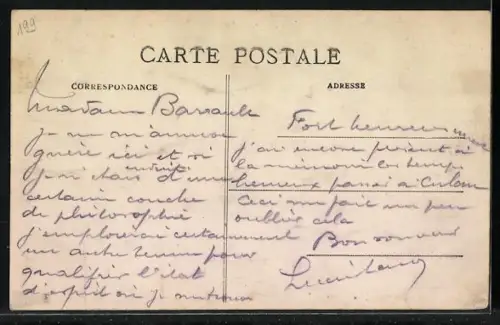 199
CARTE POSTALE
CORRESPONDANCE
ADRESSE
Madame Barrault
je ne m'amuse
guère ici et si
je n'étais enduit d'une
certaine couche
de philosophie
j'emploierai certainement
un autre terme pour
qualifier l'état
d'esprit où je me trouve
Fort heureusement
j'ai encore présent à
la mémoire les temps
heureux passés à
Ceci me fait un peu
oublier cela
Bon souvenir